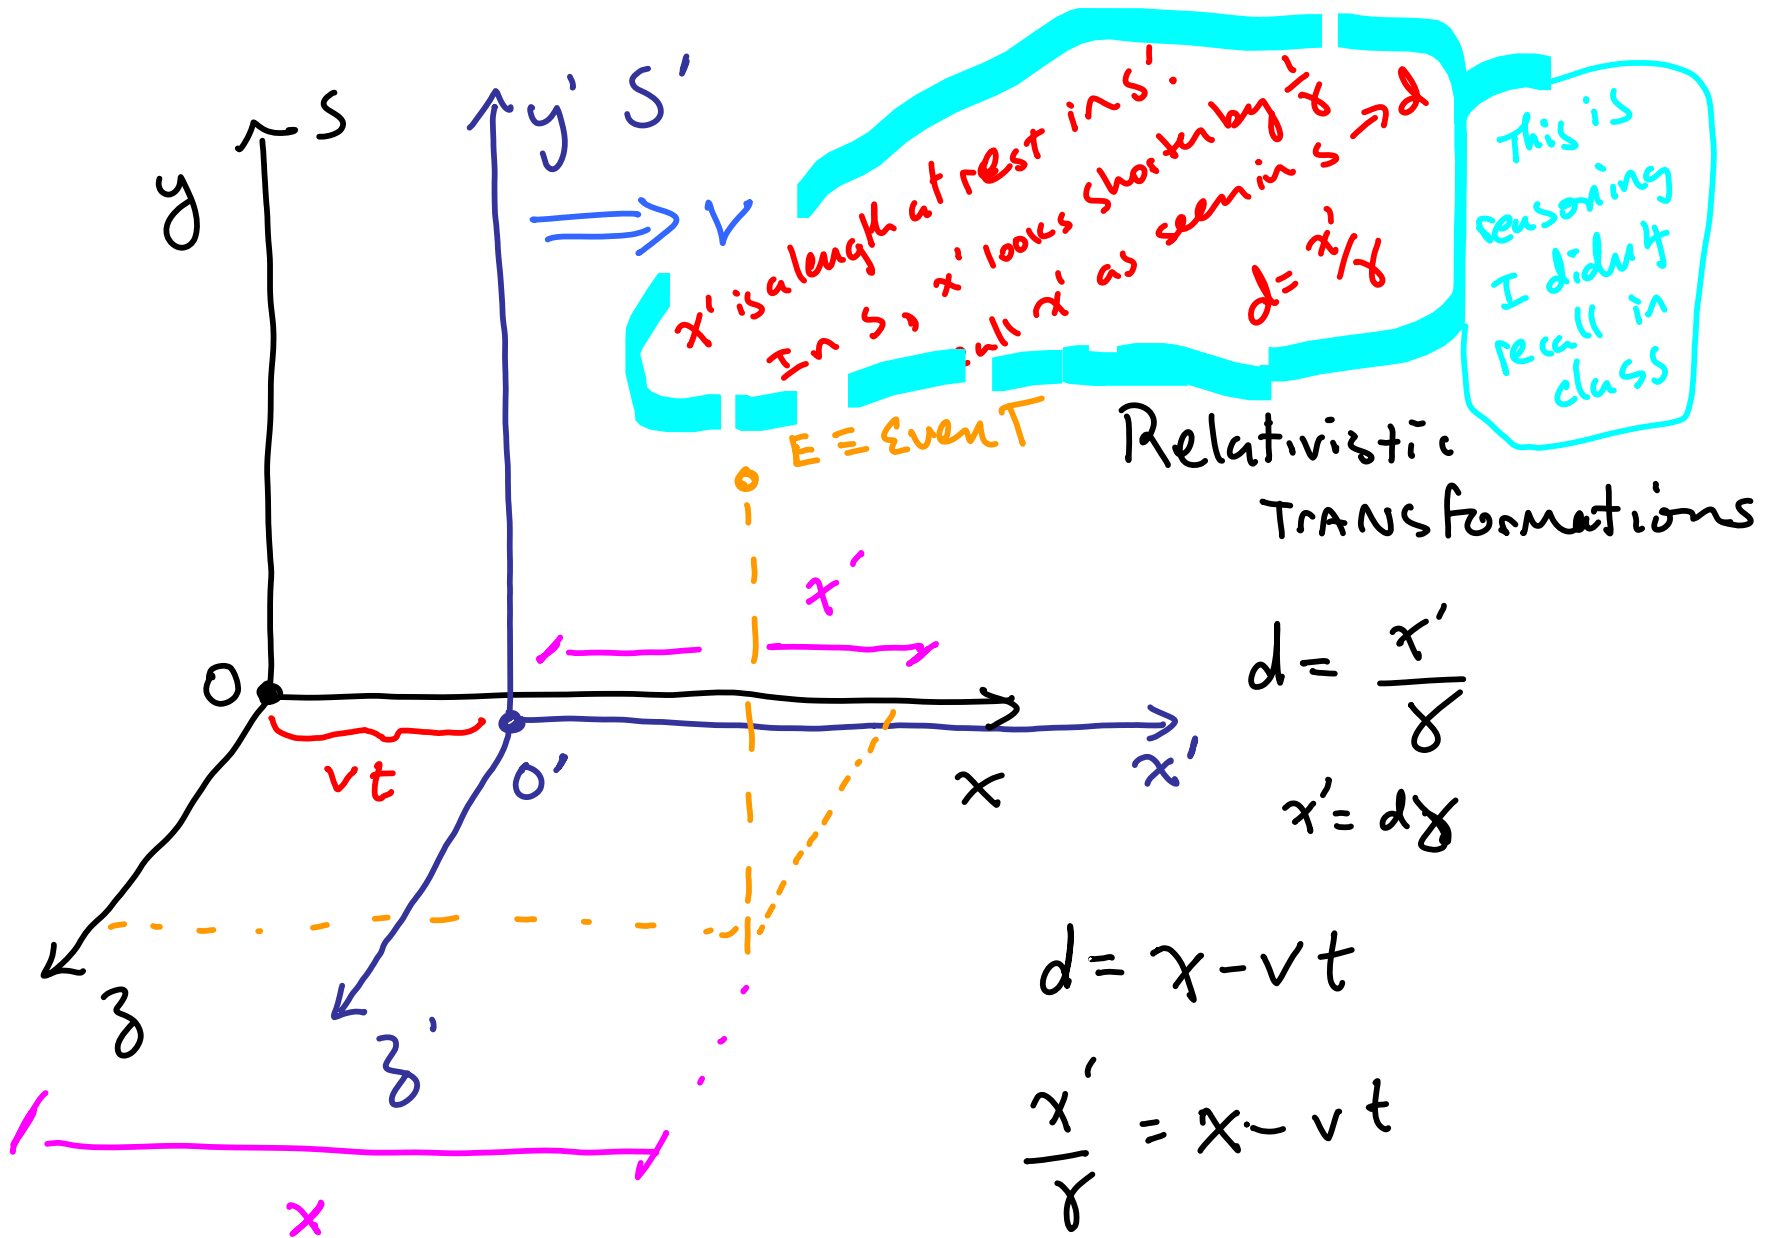 S
y
y' S'
v
x' is a length at rest in S'.
In S, x' looks shorten by 1/γ
call x' as seen in S → d
d = x'/γ
This is
reasoning
I didn't
recall in
class
E ≡ EvenT
Relativistic
TrANSformations
x'
O
vt
O'
x
x'
z
z'
x
d = x'/γ
x' = dγ
d = x - vt
x'/γ = x - vt